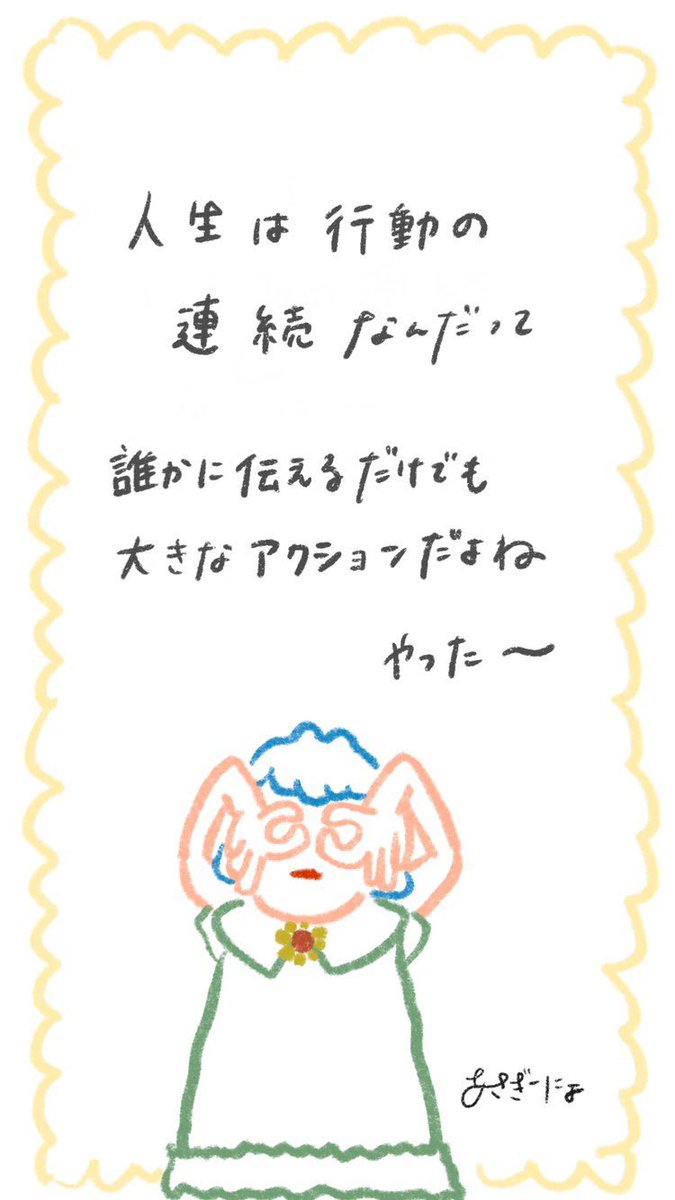 人生は行動の
連続なんだって
誰かに伝えるだけでも
大きなアクションだよね
やった〜
あさぎーにょ